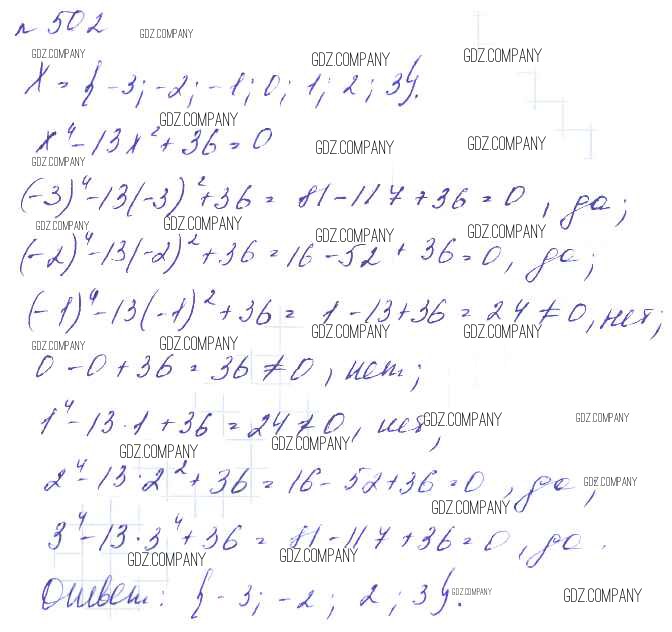 № 502
GDZ.COMPANY
GDZ.COMPANY GDZ.COMPANY GDZ.COMPANY
X = {-3; -2; -1; 0; 1; 2; 3}.
GDZ.COMPANY
x⁴ - 13x² + 36 = 0
GDZ.COMPANY GDZ.COMPANY GDZ.COMPANY
(-3)⁴ - 13(-3)² + 36 = 81 - 117 + 36 = 0, да;
GDZ.COMPANY GDZ.COMPANY GDZ.COMPANY GDZ.COMPANY
(-2)⁴ - 13(-2)² + 36 = 16 - 52 + 36 = 0, да;
(-1)⁴ - 13(-1)² + 36 = 1 - 13 + 36 = 24 ≠ 0, нет;
GDZ.COMPANY GDZ.COMPANY GDZ.COMPANY GDZ.COMPANY
0 - 0 + 36 = 36 ≠ 0, нет;
1⁴ - 13·1 + 36 = 24 ≠ 0, нет,
GDZ.COMPANY GDZ.COMPANY GDZ.COMPANY GDZ.COMPANY
2⁴ - 13·2² + 36 = 16 - 52 + 36 = 0, да,
GDZ.COMPANY GDZ.COMPANY
3⁴ - 13·3⁴ + 36 = 81 - 117 + 36 = 0, да.
GDZ.COMPANY GDZ.COMPANY
Ответ: {-3; -2; 2; 3}.
GDZ.COMPANY GDZ.COMPANY